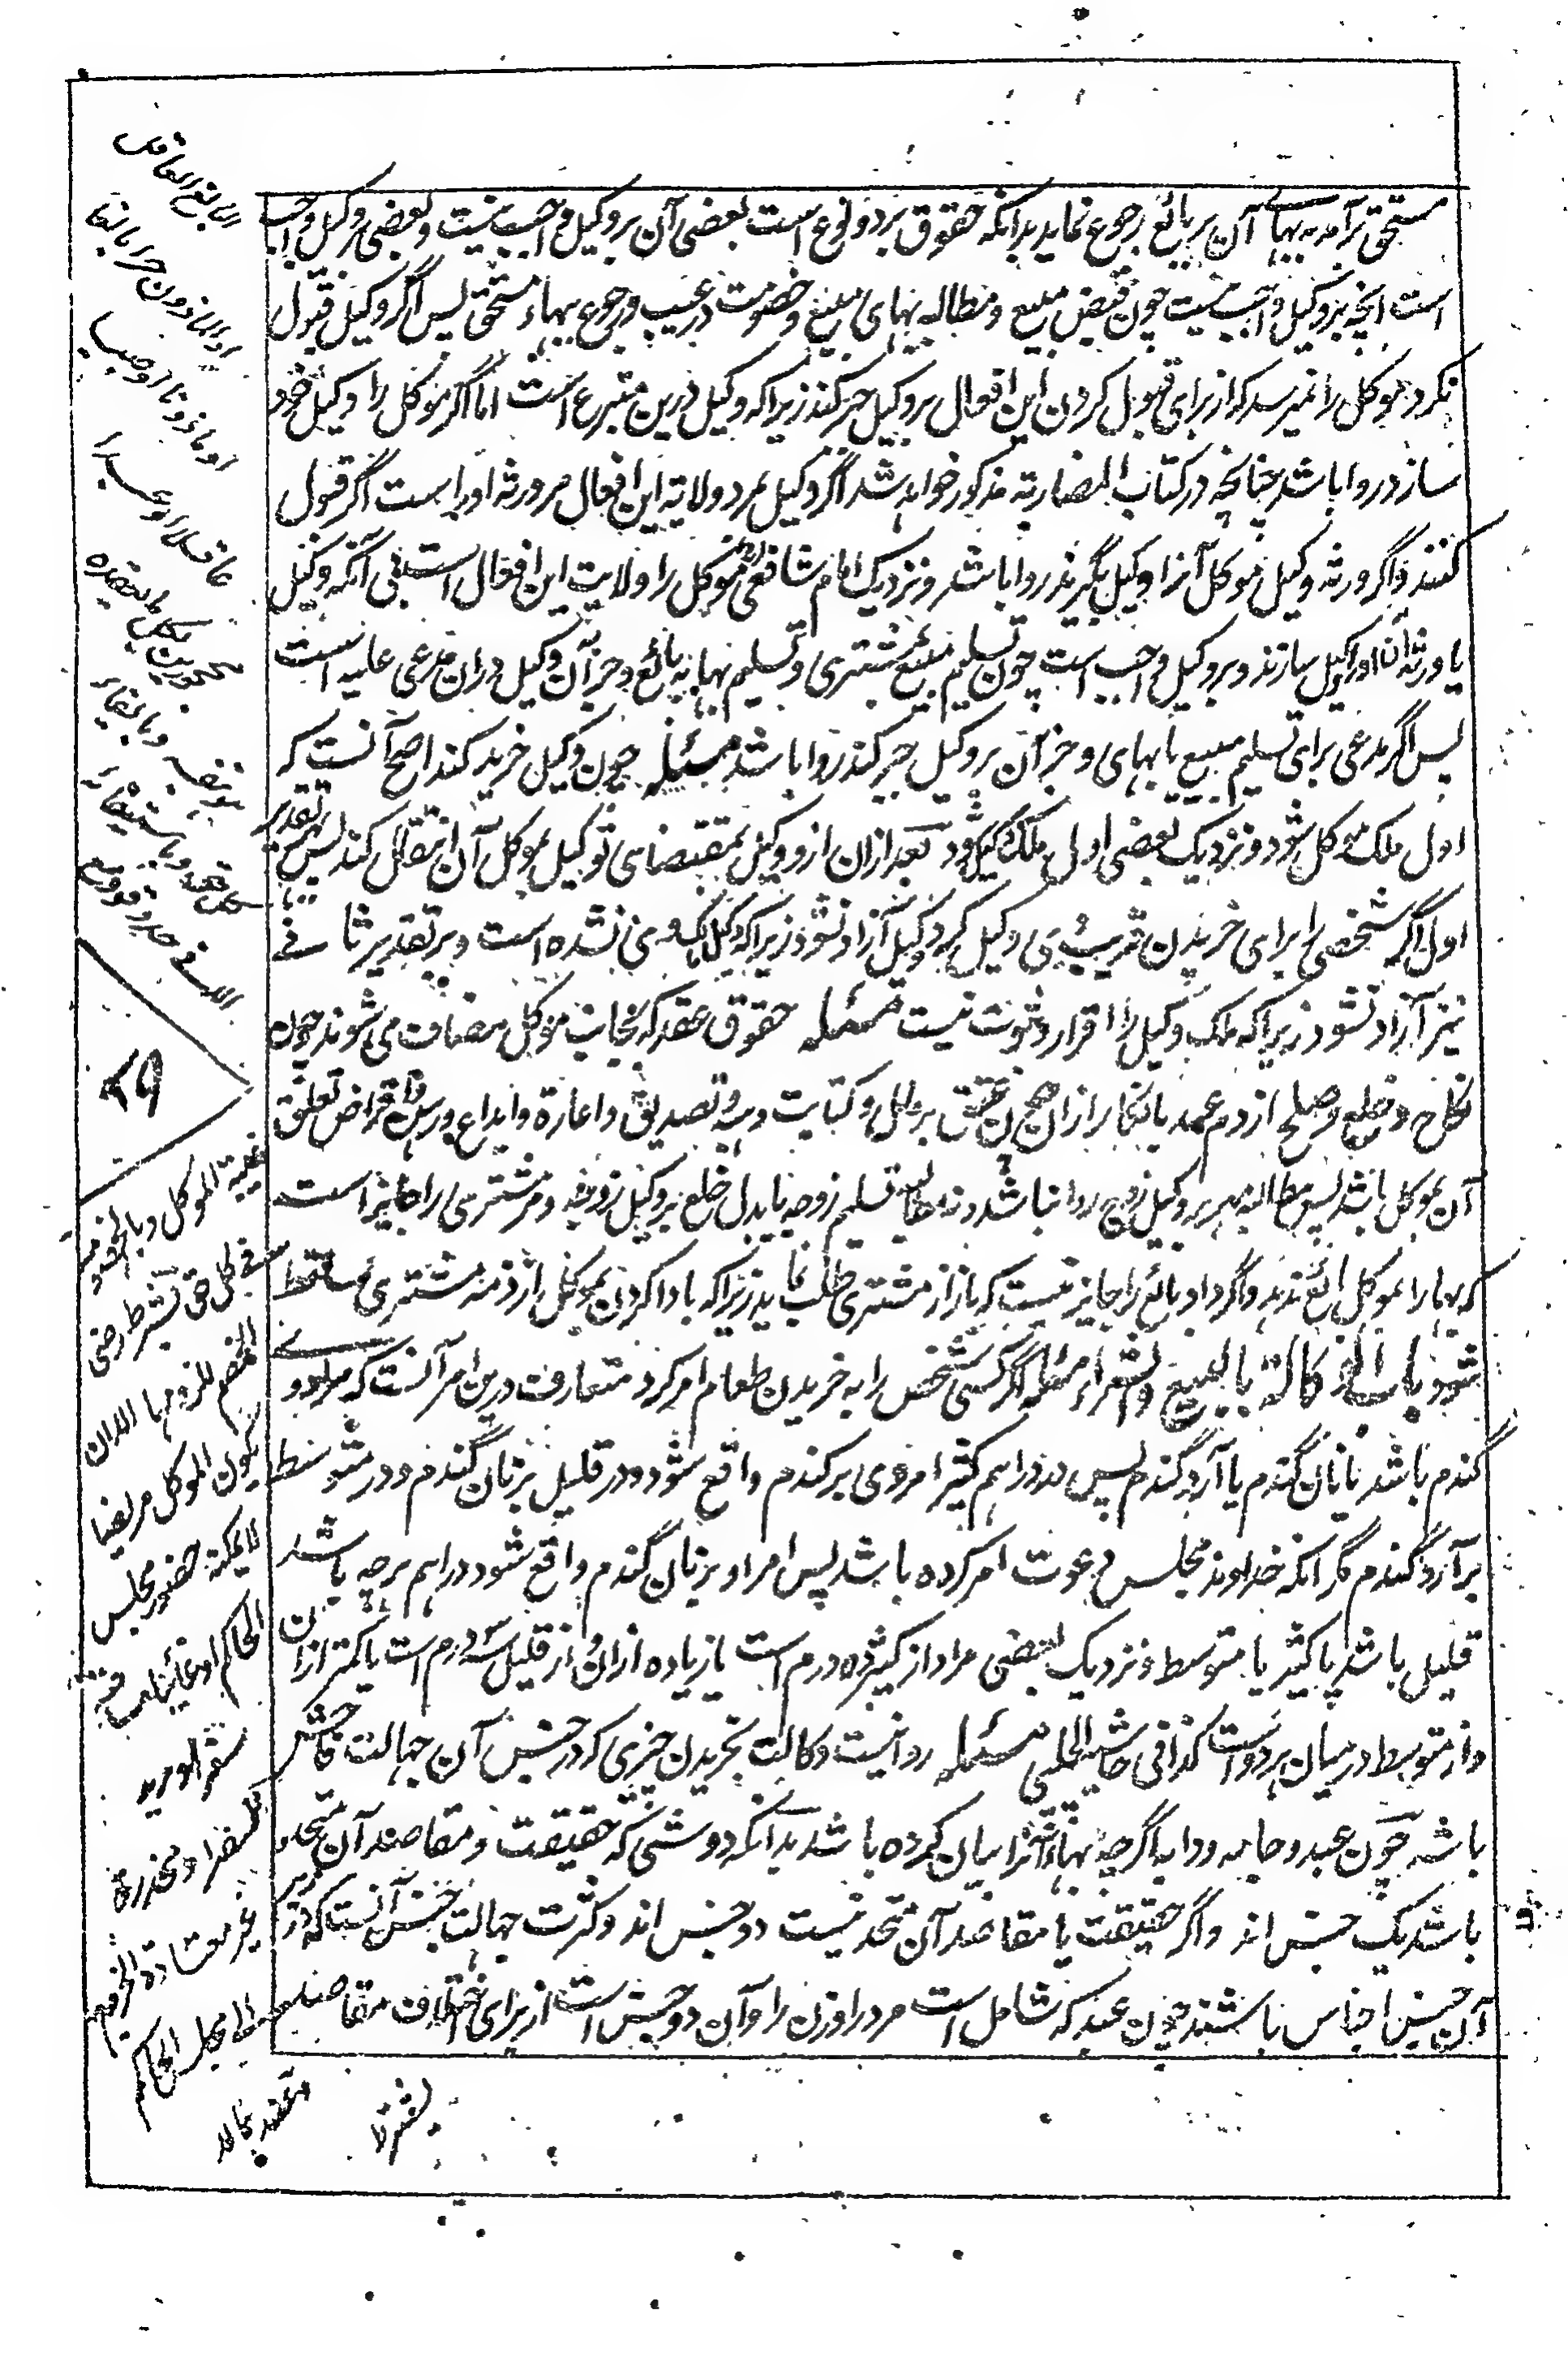 مستحق برآمد به بهای آن بر بائع رجوع نماید بدانکه حقوق بر دو نوع است بعضی آن بر وکیل واجب نیست و بعضی بر وکیل واجب
است آنچه بر وکیل واجب نیست چون قبض مبیع و مطالبه بهای مبیع و خصومت در عیب و رجوع ببهاء مستحق پس اگر وکیل قبول
نکرد موکل را نمیرسد که از برای قبول کردن این افعال بر وکیل جبر کند زیرا که وکیل درین متبرع است اما اگر موکل را وکیل خود
سازد روا باشد چنانچه در کتاب المضاربة مذکور خواهد شد اگر وکیل بمرد ولایة این افعال مر ورثه او را است اگر قبول
کنند و اگر ورثه وکیل موکل آنرا وکیل بگیرند روا باشد و نزدیک امام شافعی موکل را ولایت این افعال است بی آنکه وکیل
یا ورثه آن او را وکیل سازند و بر وکیل واجب است چون تسلیم مبیع بمشتری و تسلیم بها به بائع و جز آن وکیل در ان مدعی علیه است
پس اگر مدعی برای تسلیم مبیع یا بهای و جز آن بر وکیل جبر کند روا باشد مسئله چون وکیل خرید کند اصح آنست که
اول ملک موکل شود و نزدیک بعضی اول ملک وکیل شود بعد ازان از وکیل بمقتضای توکیل بموکل آن انتقال کند پس بر تقدیر
اول اگر شخصی را برای خریدن قریب وی وکیل کرد وکیل آزاد نشود زیرا که وکیل مالک وی نشده است و بر تقدیر ثانی
نیز آزاد نشود زیرا که ملک وکیل را اقرار و ثبوت نیست مسئله حقوق عقد که بجانب موکل مضاف می شوند چون
نکاح و خلع و صلح از دم عمد یا انکار از ان همچون عتق بر مال و کتابت و هبه و تصدیق و اعارة و ایداع و رهن و اقراض تعلق
آن بموکل باشد پس مطالبه مهر بر وکیل زوج روا نباشد و نه مطالبه تسلیم زوجه یا بدل خلع بر وکیل زوجه و مر مشتری را جایز است
که بها را بموکل بائع ندهد و اگر داد بائع را جایز نیست که باز از مشتری طلب نماید زیرا که با دا کردن بموکل از ذمه مشتری ساقط
شود باب الوکالة بالبیع والشراء مسئله اگر کسی شخص را به خریدن طعام امر کرد متعارف درین امر آنست که مراد او
گندم باشد یا نان گندم یا آرد گندم پس در دراهم کثیر امر وی بر گندم واقع شود و در قلیل بر نان گندم و در متوسط
بر آرد گندم مگر انکه خداوند مجلس دعوت امر کرده باشد پس امر او بر نان گندم واقع شود دراهم هر چه باشد
قلیل باشد یا کثیر یا متوسط و نزدیک بعضی مراد از کثیر ده درم است یا زیاده ازان و از قلیل سه درم است یا کمتر ازان
و از متوسط درمیان هر دو است کذا فی حاشیة الچلپی مسئله روا نیست وکالت بخریدن چیزی که در جنس آن جهالت فاحش
باشد چون عبد و جامه و دابه اگر چه بهاء آنرا بیان کرده باشد بدانکه دو شئی که حقیقت و مقاصد آن متحد
باشد یک جنس اند و اگر حقیقت یا مقاصد آن متحد نیست دو جنس اند و کثرت جهالت جنس آنست که در زیر
آن جنس اجناس باشند چون عبد که شامل است مرد را و زن را و آن دو جنس است از برای اختلاف مقاصد
البالغ العاقل
او الماذون حرا بالغا
او ماذونا او صبیا
عاقلا او عبدا
محجورین بکل ما یعقده
بنفسه و بایفاء
کل حق و باستیفائه
الا فی حد و قود
۲۹
بغیبة الموکل و بالخصومة
فی کل حق بشرط رضی
الخصم للزومها الا ان
یکون الموکل مریضا
لا یمکنه حضور مجلس
الحاکم او غائبا مسافة
سفر او مریدا
للسفر او مخدرة
غیر معتادة الخروج
الی مجلس الحاکم